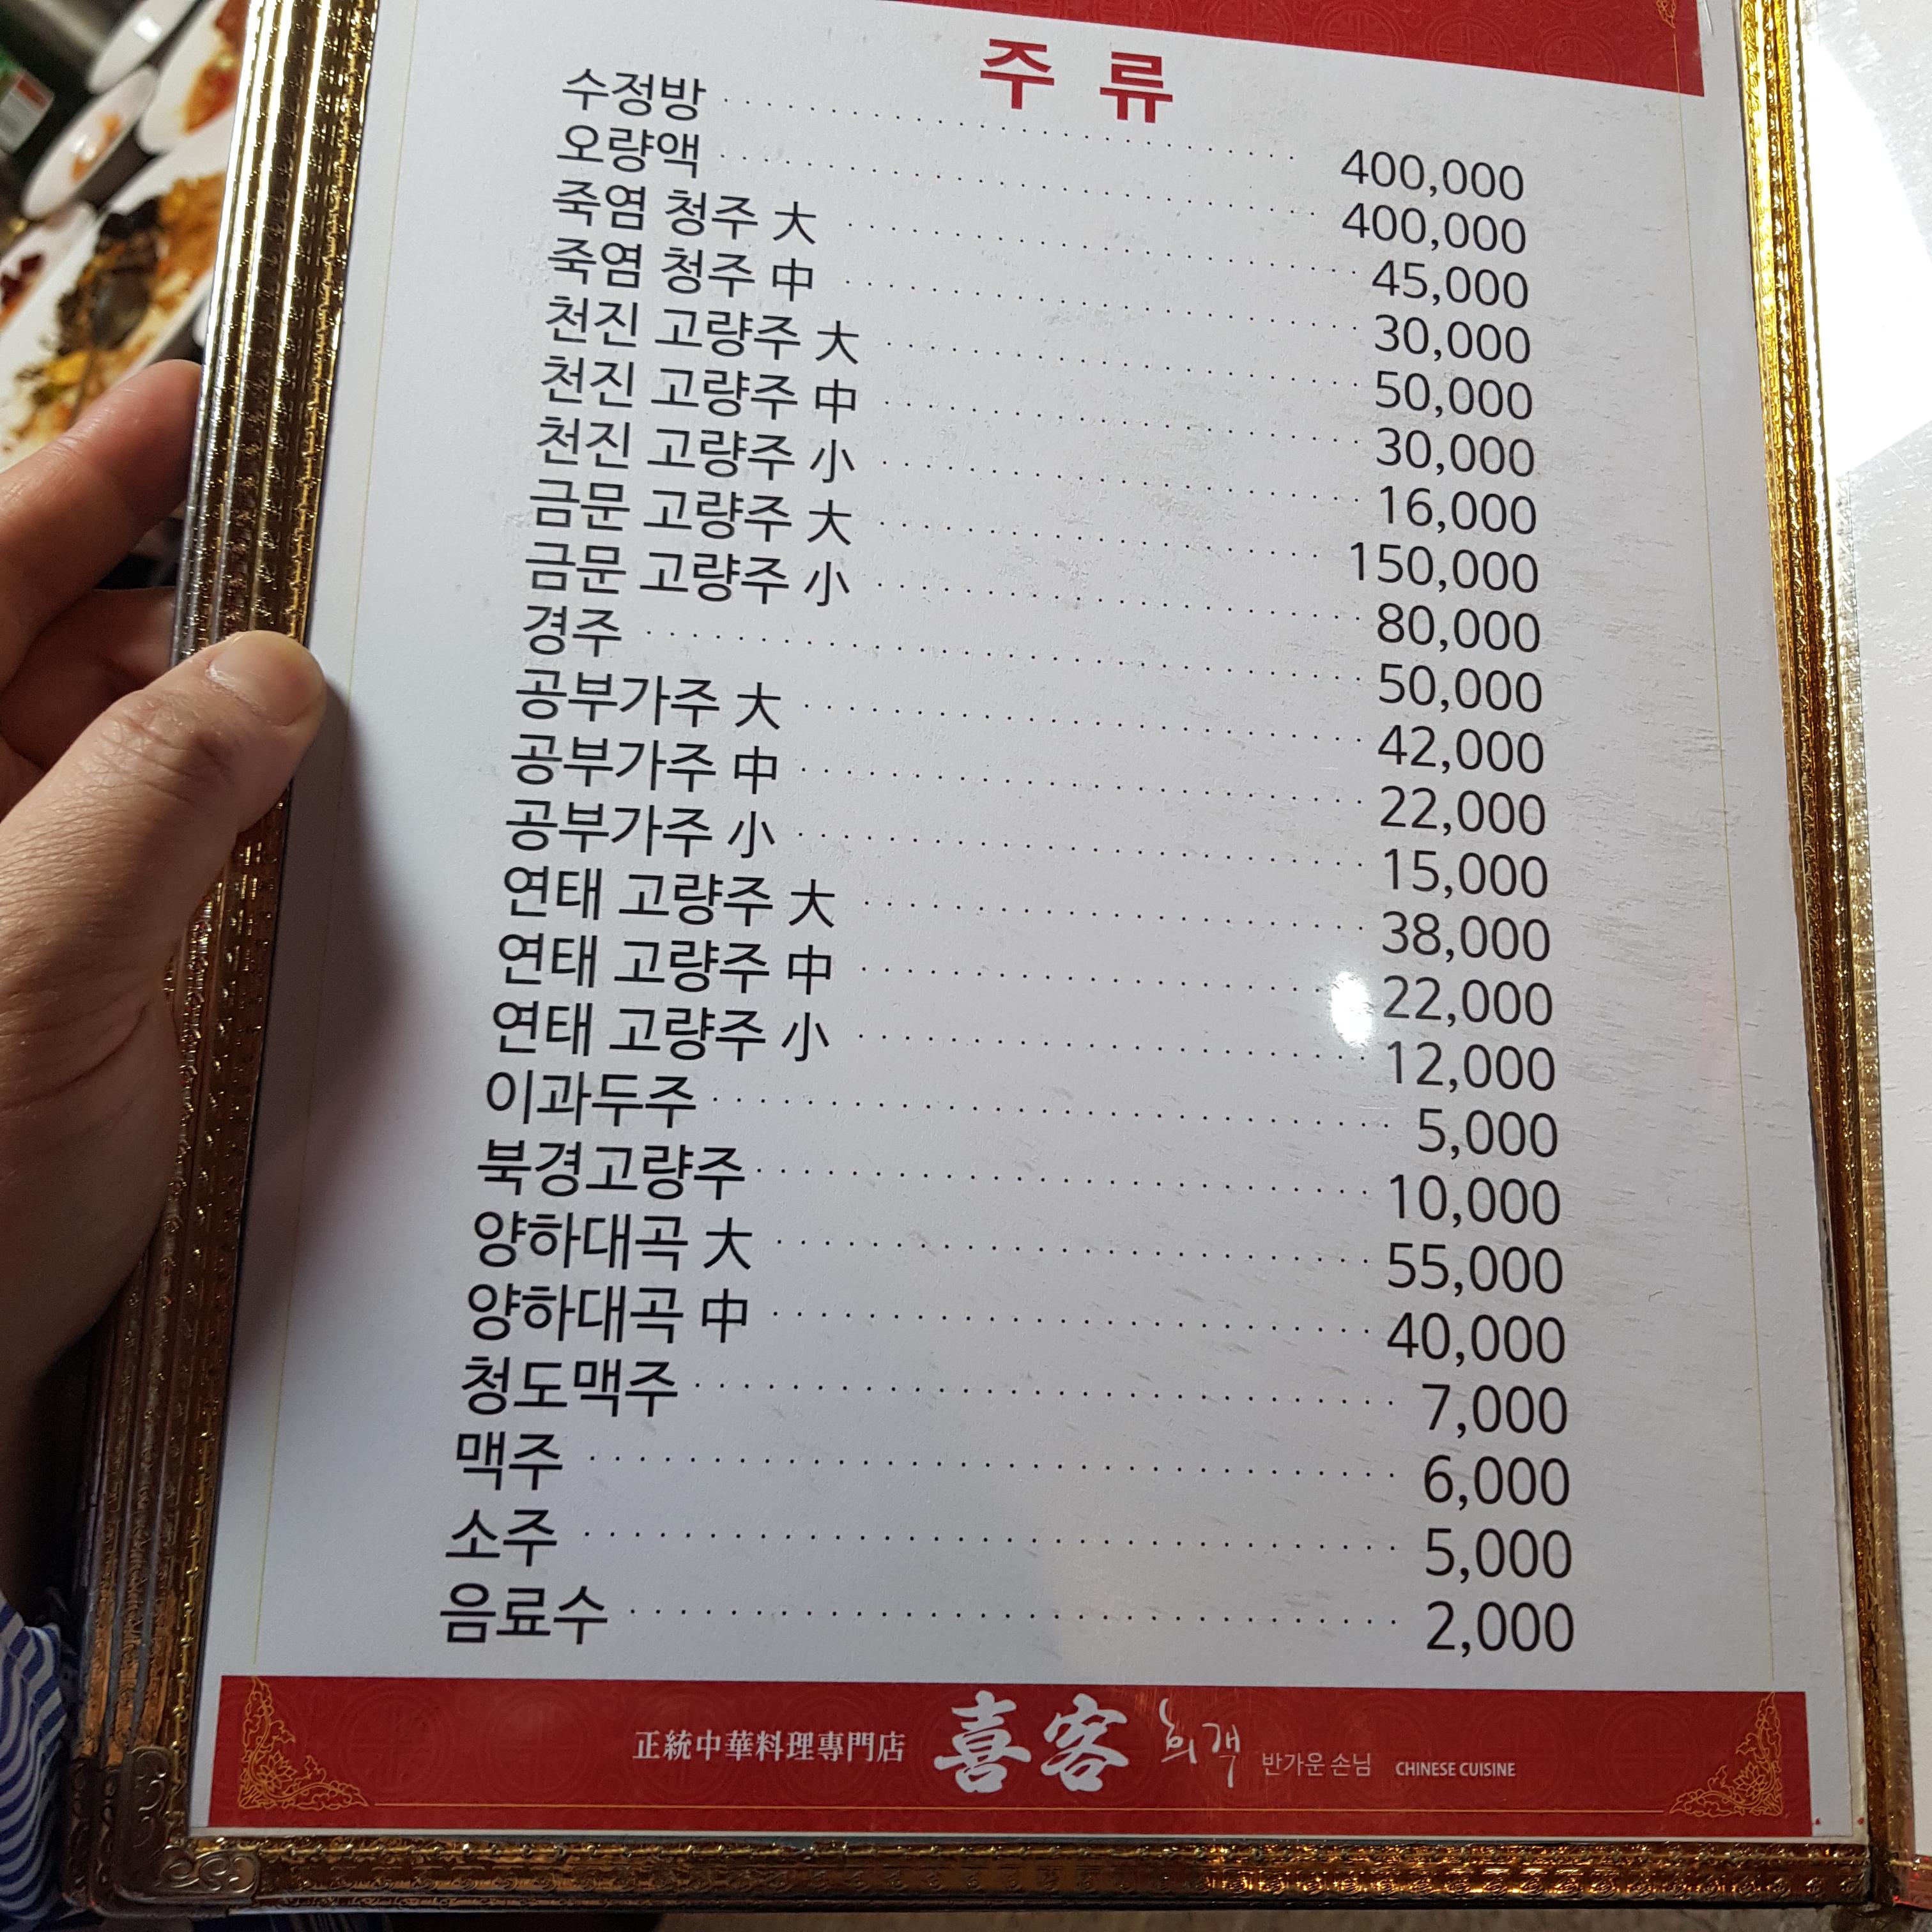 주류
수정방 400,000
오량액 400,000
죽염 청주 大 45,000
죽염 청주 中 30,000
천진 고량주 大 50,000
천진 고량주 中 30,000
천진 고량주 小 16,000
금문 고량주 大 150,000
금문 고량주 小 80,000
경주 50,000
공부가주 大 42,000
공부가주 中 22,000
공부가주 小 15,000
연태 고량주 大 38,000
연태 고량주 中 22,000
연태 고량주 小 12,000
이과두주 5,000
북경고량주 10,000
양하대곡 大 55,000
양하대곡 中 40,000
청도맥주 7,000
맥주 6,000
소주 5,000
음료수 2,000
正統中華料理專門店 喜客 희객 반가운 손님 CHINESE CUISINE